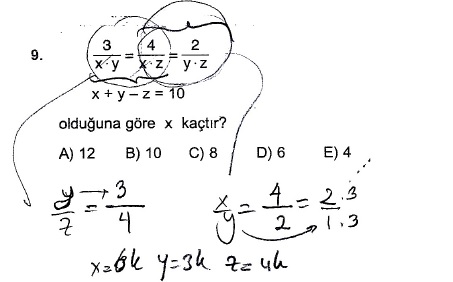 9. 3/(x·y) = 4/(x·z) = 2/(y·z)
x + y – z = 10
olduğuna göre x kaçtır?
A) 12 B) 10 C) 8 D) 6 E) 4
y/z = 3/4 x/y = 4/2 = 2·3/1·3
x=6k y=3k z=4k